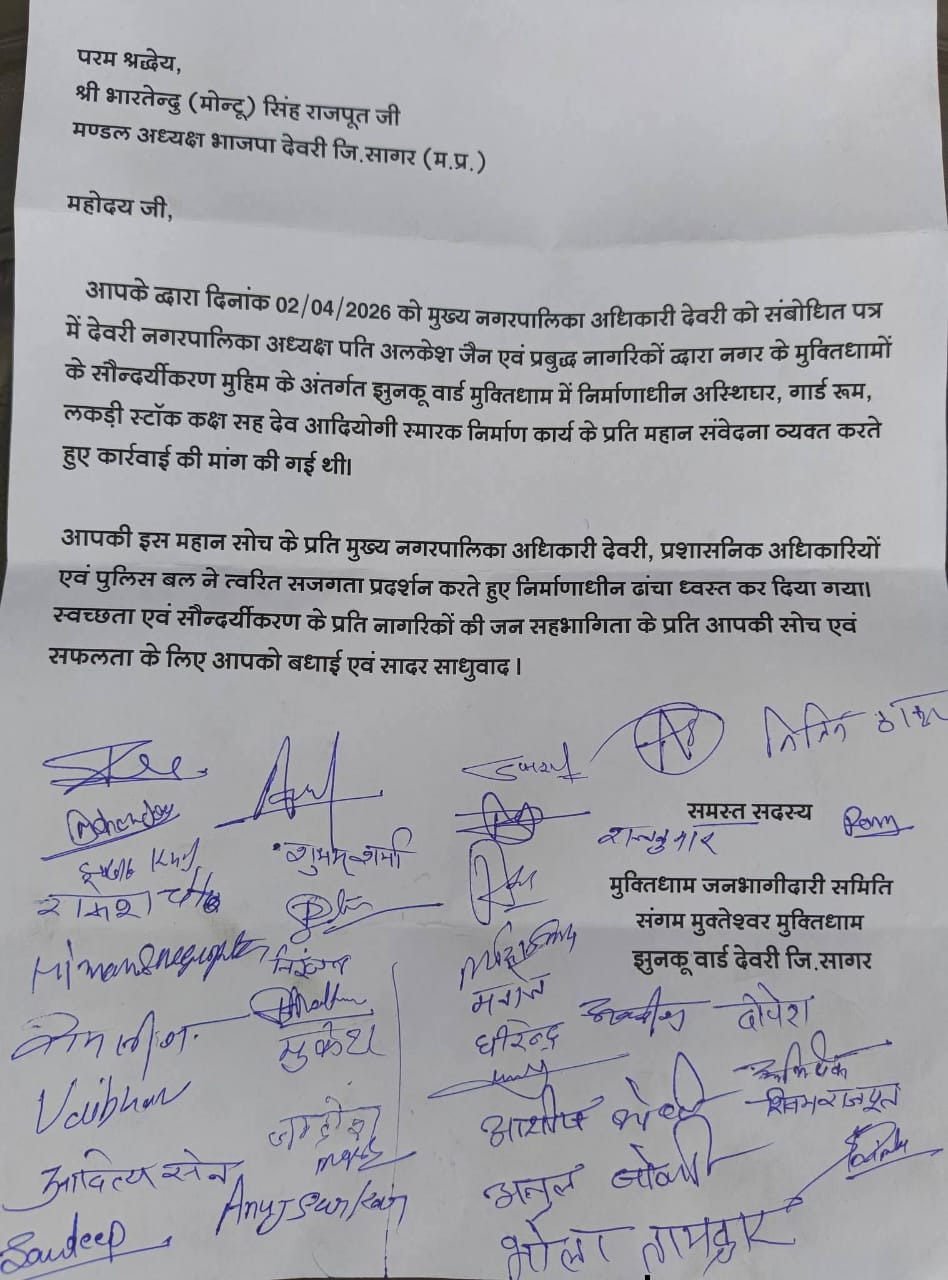 परम श्रद्धेय,
श्री भारतेन्दु (मोन्टू) सिंह राजपूत जी
मण्डल अध्यक्ष भाजपा देवरी जि.सागर (म.प्र.)
महोदय जी,
आपके द्वारा दिनांक 02/04/2026 को मुख्य नगरपालिका अधिकारी देवरी को संबोधित पत्र
में देवरी नगरपालिका अध्यक्ष पति अलकेश जैन एवं प्रबुद्ध नागरिकों द्वारा नगर के मुक्तिधामों
के सौन्दर्यीकरण मुहिम के अंतर्गत झुनकू वार्ड मुक्तिधाम में निर्माणाधीन अस्थिघर, गार्ड रूम,
लकड़ी स्टॉक कक्ष सह देव आदियोगी स्मारक निर्माण कार्य के प्रति महान संवेदना व्यक्त करते
हुए कार्रवाई की मांग की गई थी।
आपकी इस महान सोच के प्रति मुख्य नगरपालिका अधिकारी देवरी, प्रशासनिक अधिकारियों
एवं पुलिस बल ने त्वरित सजगता प्रदर्शन करते हुए निर्माणाधीन ढांचा ध्वस्त कर दिया गया।
स्वच्छता एवं सौन्दर्यीकरण के प्रति नागरिकों की जन सहभागिता के प्रति आपकी सोच एवं
सफलता के लिए आपको बधाई एवं सादर साधुवाद।
नितिन
समस्त सदस्य
शुभम शर्मा
मुक्तिधाम जनभागीदारी समिति
संगम मुक्तेश्वर मुक्तिधाम
झुनकू वार्ड देवरी जि.सागर
मनोज
दीपेश
धीरेन्द्र
मुकेश
Vaibhav
अभिषेक
आशीष
आदित्य सेन
अतुल जोशी
Sandeep
भोला ताम्रकार